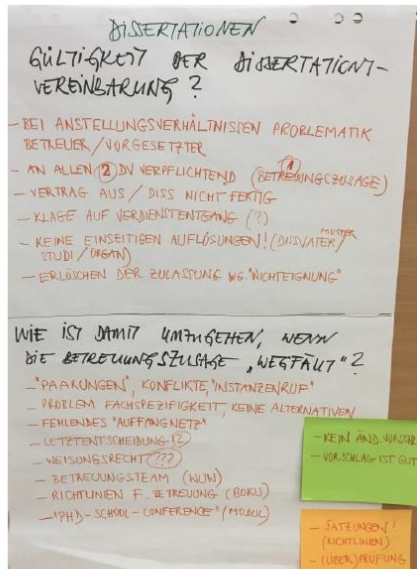 DISSERTATIONEN
GÜLTIGKEIT DER DISSERTATIONS-
VEREINBARUNG?
- BEI ANSTELLUNGSVERHÄLTNISSEN PROBLEMATIK
BETREUER/VORGESETZTER
- AN ALLEN 2 DV VERPFLICHTEND (1 BETREUUNGSZUSAGE)
- VERTRAG AUS / DISS NICHT FERTIG
- KLAGE AUF VERDIENSTENTGANG (?)
- KEINE EINSEITIGEN AUFLÖSUNGEN! (DISSVATER/MUTTER
STUDI/ORGAN)
- ERLÖSCHEN DER ZULASSUNG WG. "NICHTEIGNUNG"
WIE IST DAMIT UMZUGEHEN, WENN
DIE BETREUUNGSZUSAGE "WEGFÄLLT"?
- "PAARUNGEN", KONFLIKTE, "INSTANZENRUF"
- PROBLEM FACHSPEZIFIGKEIT, KEINE ALTERNATIVEN
- FEHLENDES "AUFFANGNETZ"
- LETZTENTSCHEIDUNG!?
- WEISUNGSRECHT???
- BETREUUNGSTEAM (WUW)
- RICHTLINIEN F. BETREUUNG (BOKU)
- "PHD-SCHOOL-CONFERENCE" (MODUL)
- KEIN ÄND.VORSCHL
- VORSCHLAG IST GUT
- SATZUNGEN!
(RICHTLINIEN)
- (ÜBER)PRÜFUNG